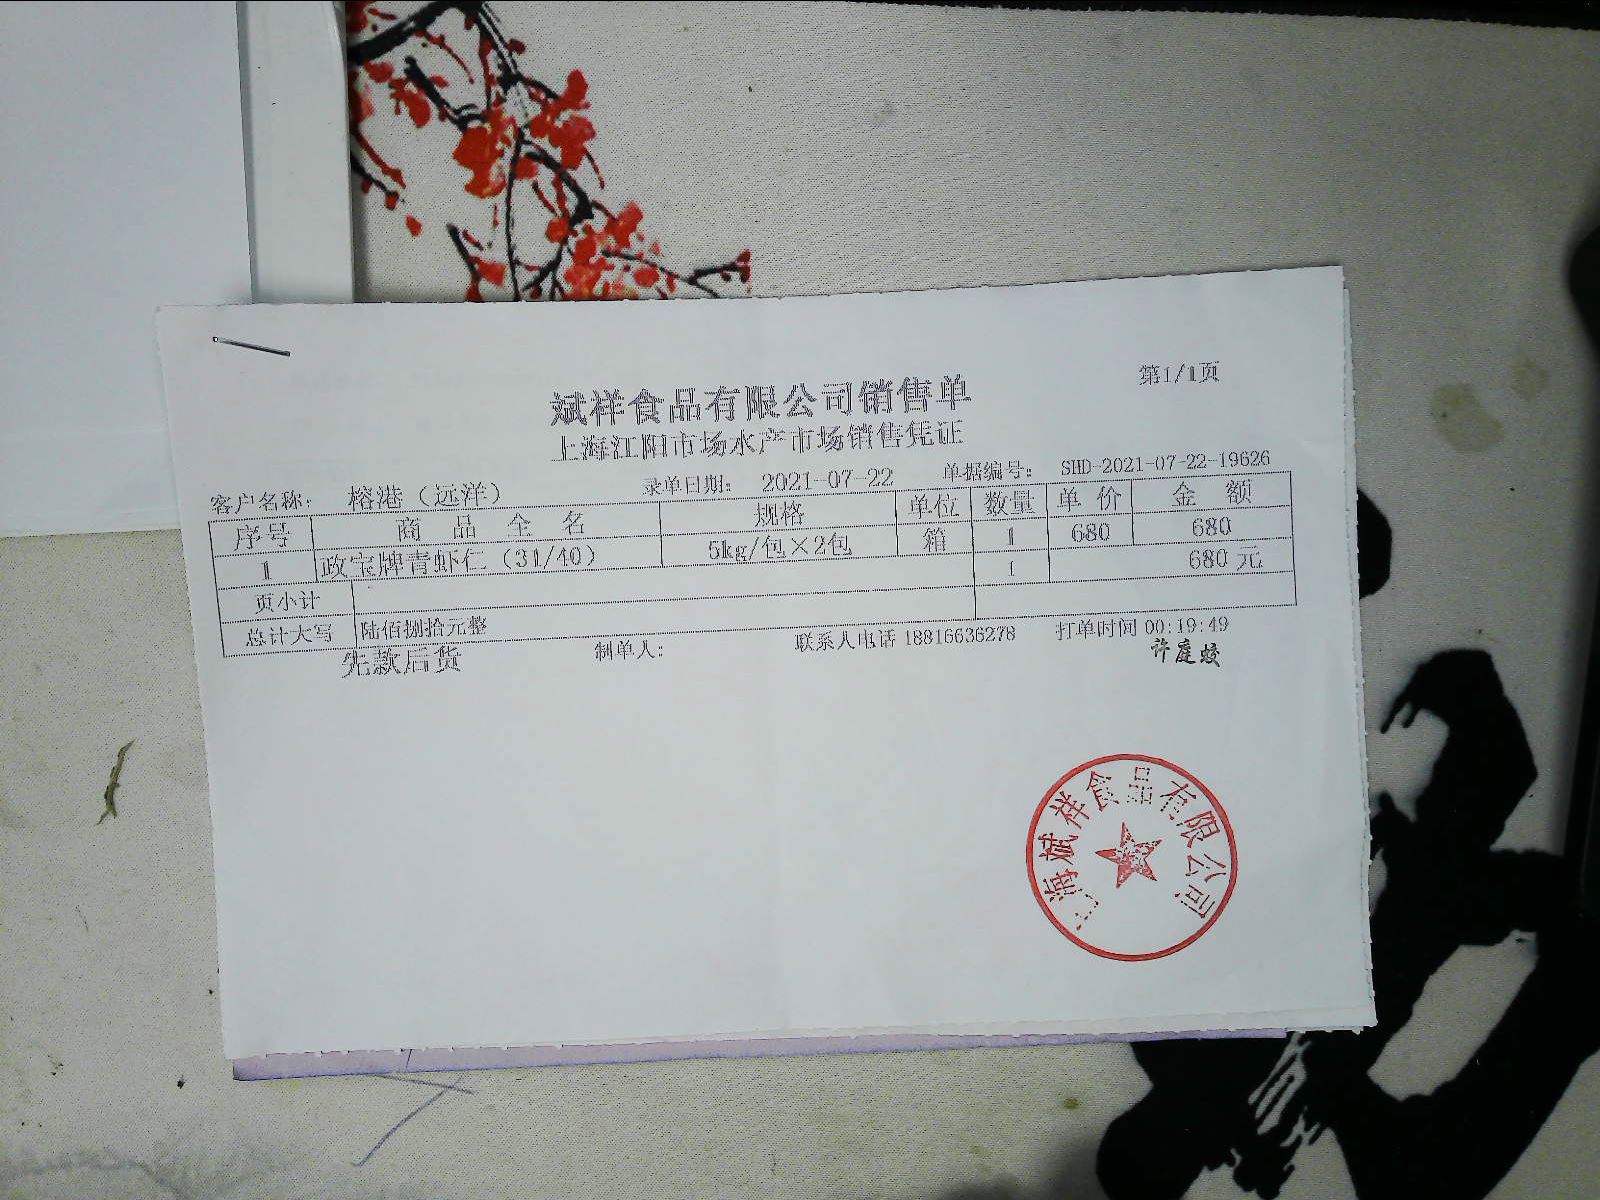 第1/1页
斌祥食品有限公司销售单
上海江阳市场水产市场销售凭证
客户名称： 榕港（远洋） 录单日期： 2021-07-22 单据编号： SHD-2021-07-22-19626
序号 商品全名 规格 单位 数量 单价 金额
1 政宝牌青虾仁（31/40） 5kg/包×2包 箱 1 680 680
页小计 1 680元
总计大写 陆佰捌拾元整
先款后货 制单人： 联系人电话 18816636278 打单时间 00:19:49
许庭蛟
上海斌祥食品有限公司